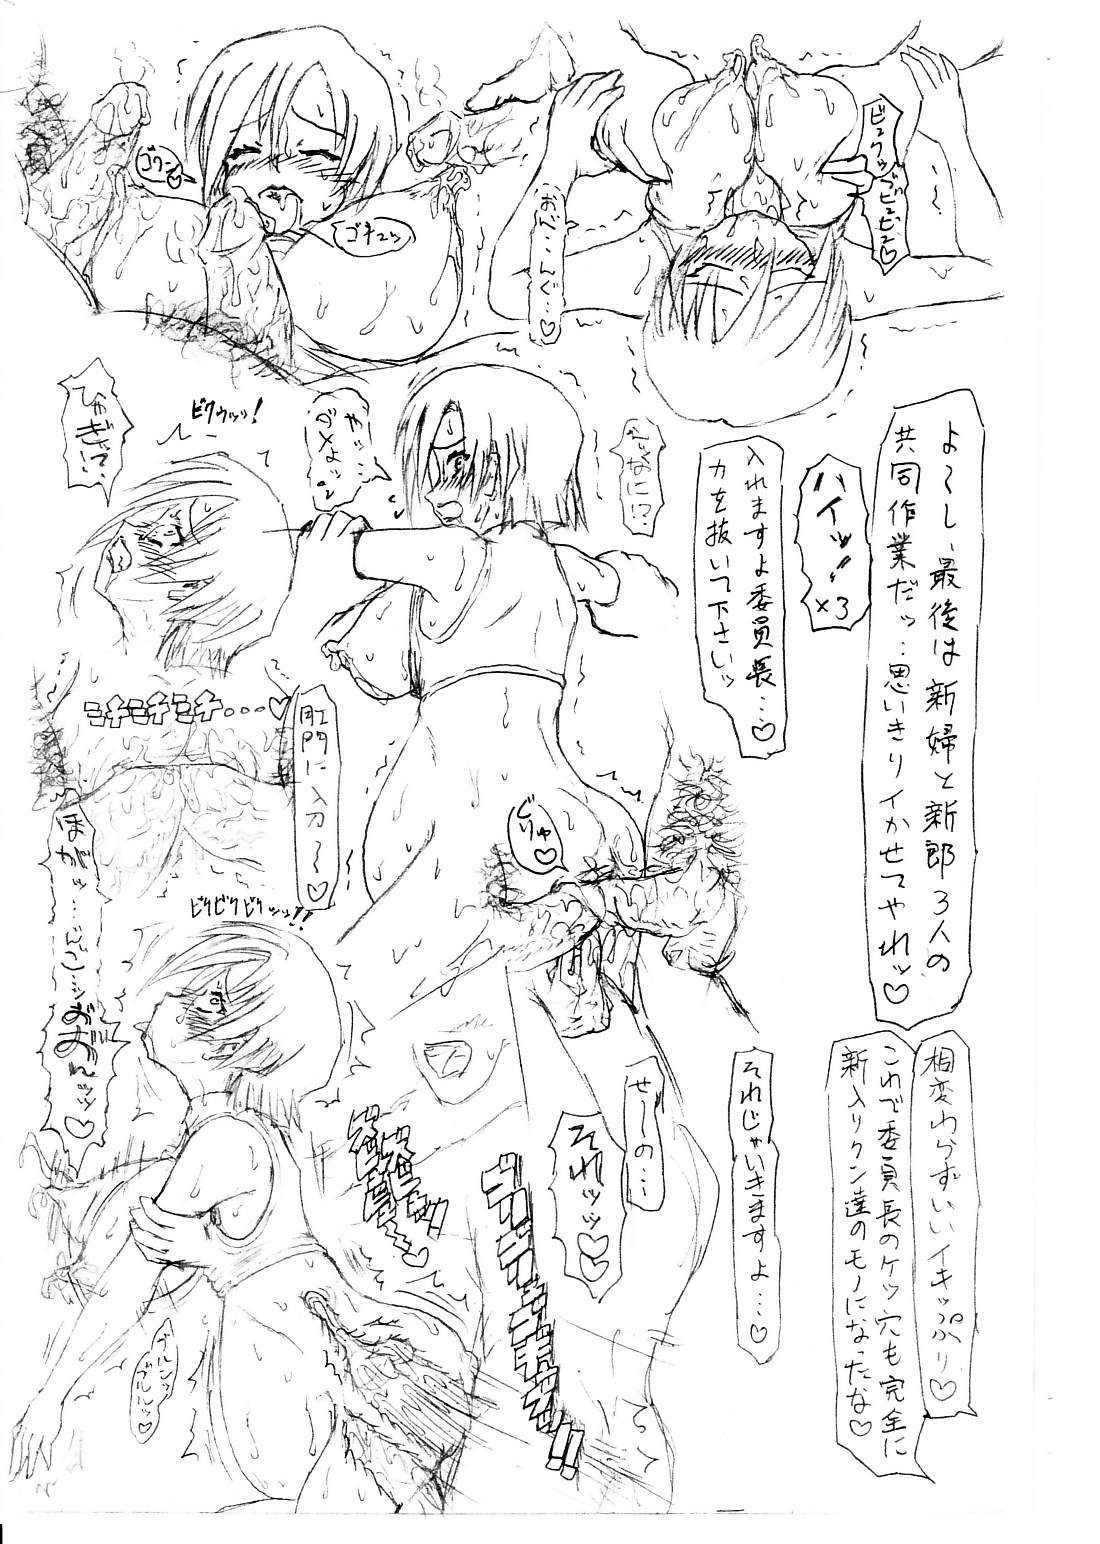 ビュクッブビュビュ♡
おべ…んぐ…♡
ゴチュッ
ゴクン♡
よ〜し、最後は新婦と新郎3人の
共同作業だッ…思いきりイかせてやれッ♡
ハイッ!!×3
入れますよ委員長…♡
力を抜いて下さいッ
なに!?
やッ…
ダメよッ
ビクゥッッ!
ひぎゃっ!?
ミチミチミチ...♡
肛門に入刀〜♡
じりゅ♡
ビクビクビクッッ!!
相変わらずいいイキッぷり♡
これで委員長のケツ穴も完全に
新入りクン達のモノになったな♡
それじゃいきますよ…♡
せーの…
それッッ♡
ブルンッ
ブルルッ♡